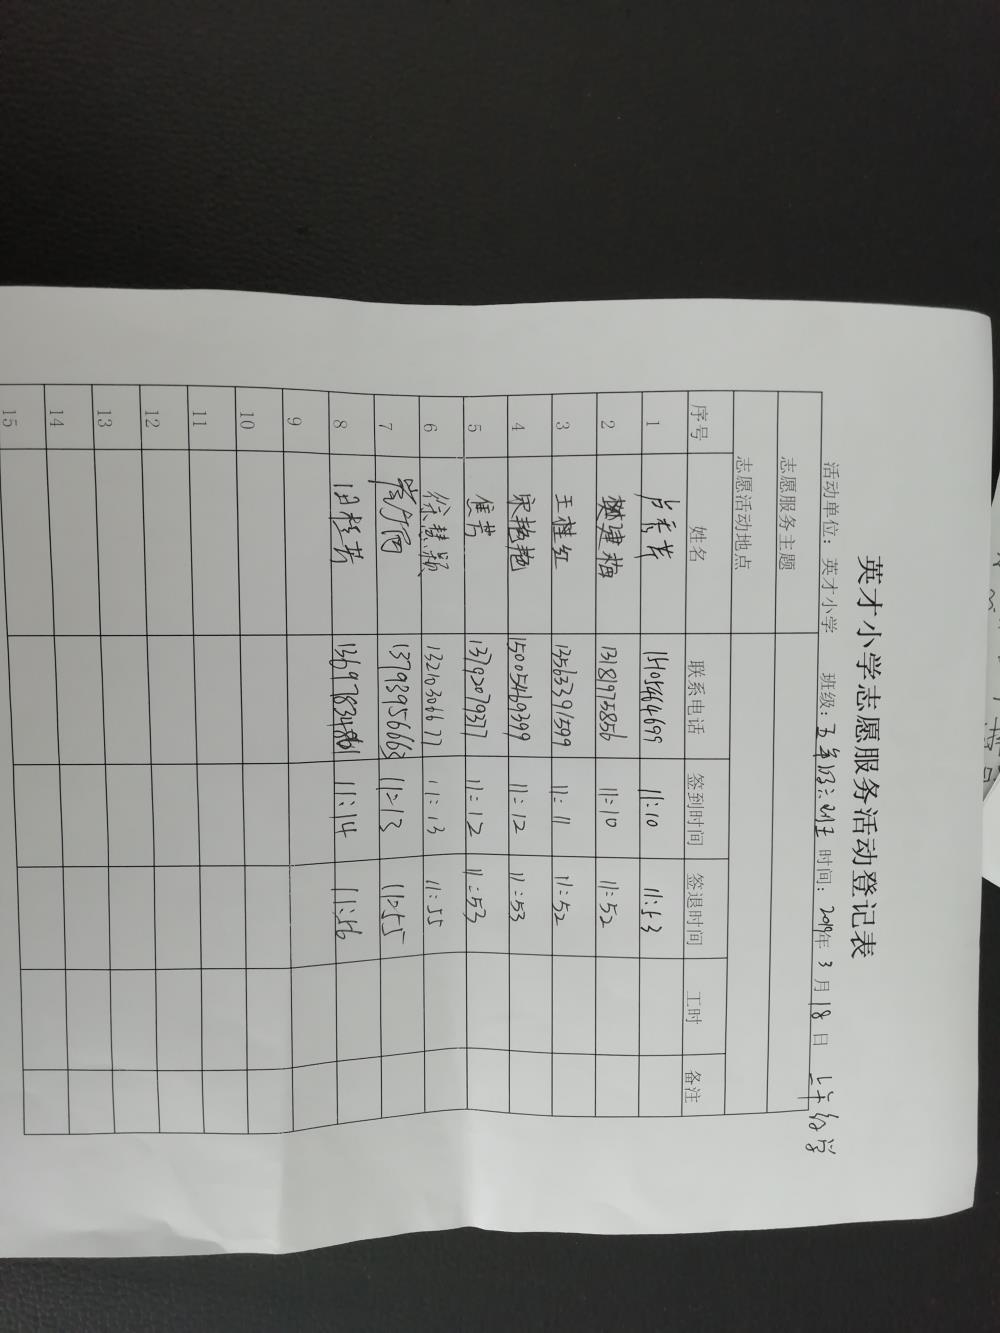 英才小学志愿服务活动登记表
活动单位：英才小学 班级：五年级六班 时间：2019年3月18日 上午放学
志愿服务主题
志愿活动地点
序号 姓名 联系电话 签到时间 签退时间 工时 备注
1 卢秀芹 15105464699 11:10 11:53
2 樊建梅 13181975856 11:10 11:52
3 王桂红 13563391599 11:11 11:52
4 宋艳艳 15005469399 11:12 11:53
5 焦芳 13792079377 11:12 11:53
6 徐慧颖 13210306677 11:13 11:55
7 13793956663 11:13 11:55
8 11:14 11:56
9
10
11
12
13
14
15